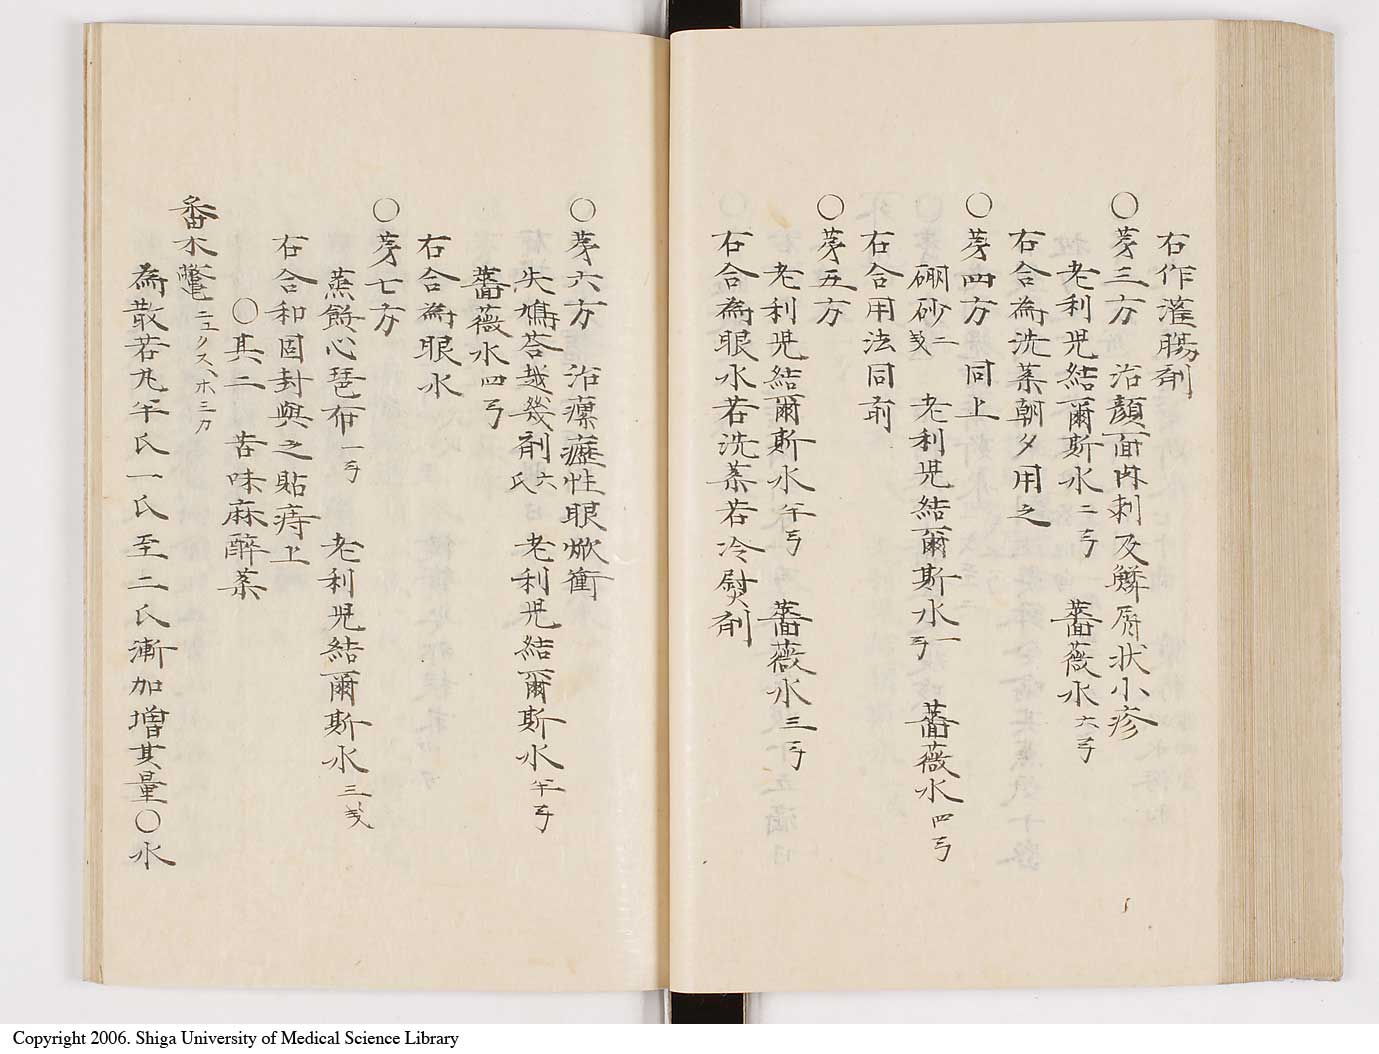 右作灌腸剤
○苐三方　治顔面内刺及鱗屑状小疹
老利児結爾斯水二弓　薔薇水六弓
右合為洗薬朝夕用之
○苐四方　同上
硼砂二戔　老利児結爾斯水一弓　薔薇水四弓
右合用法同前
○苐五方
老利児結爾斯水半弓　薔薇水三弓
右合為眼水若洗薬若冷熨剤
○苐六方　治瘰癧性眼焮衝
失鳩荅越幾剤六氏　老利児結爾斯水半弓
薔薇水四弓
右合為眼水
○苐七方
蒸餅心琶布一弓　老利児結爾斯水三戔
右合和固封與之貼痔上
○其二　苦味麻酔薬
番木鼈ニュクスホミカ
為散若丸半氏一氏至二氏漸加増其量○水
Copyright 2006. Shiga University of Medical Science Library